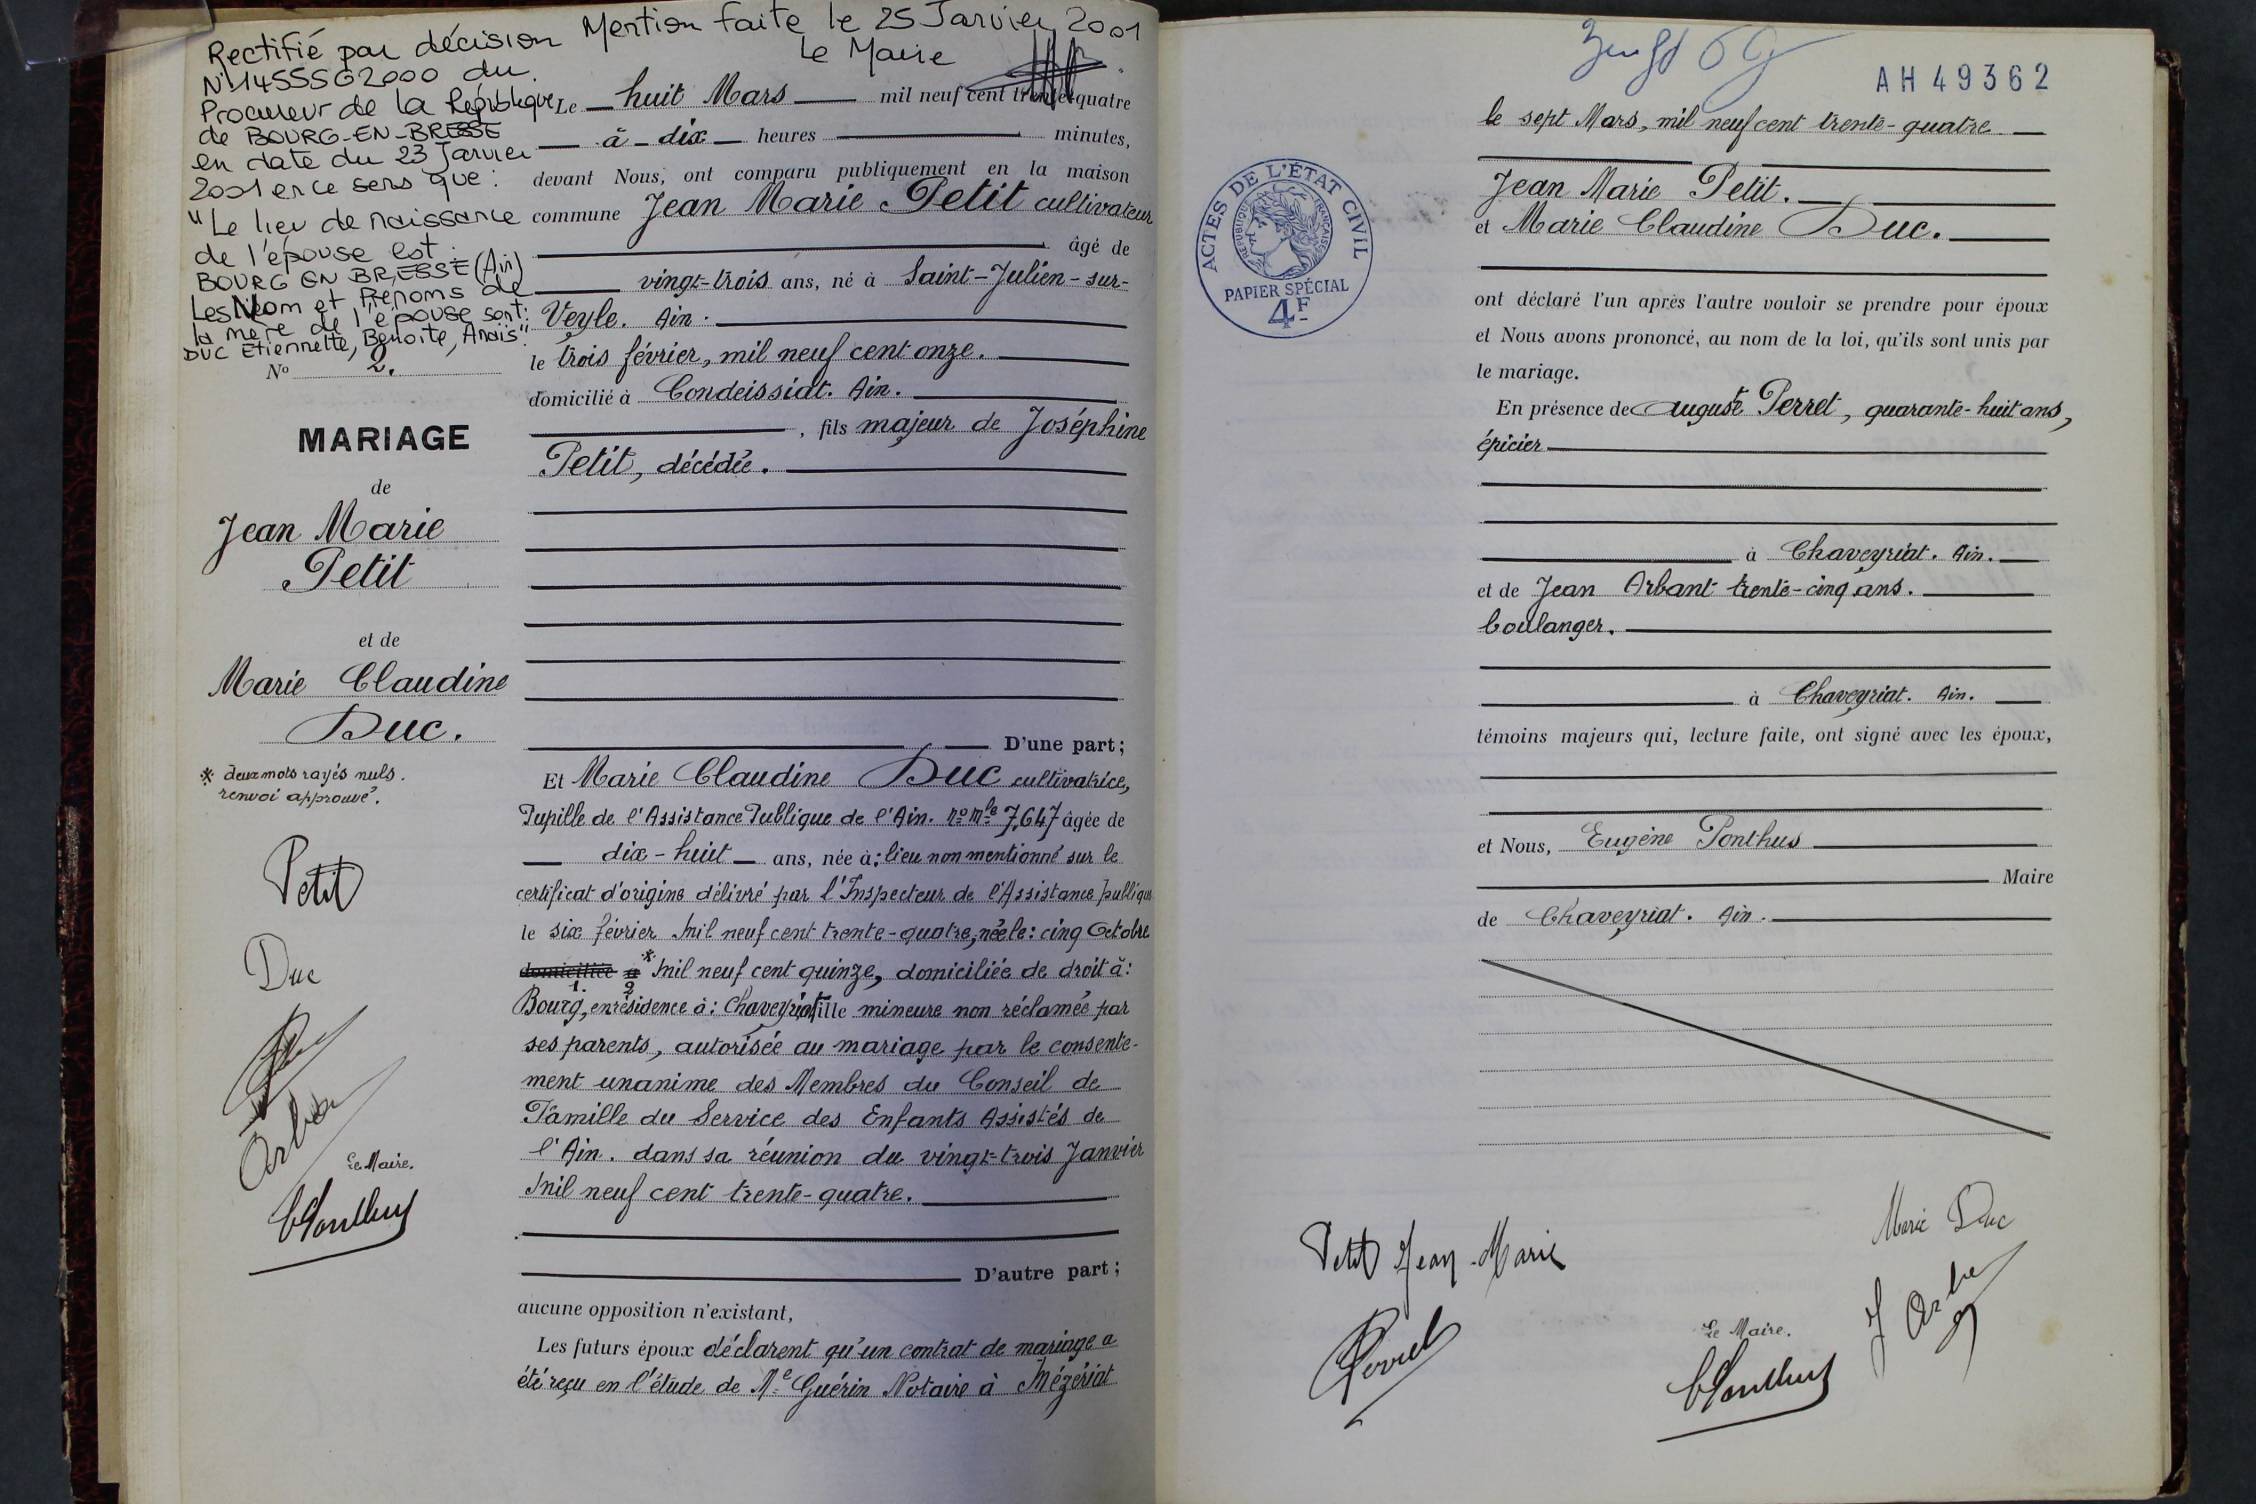 Rectifié par décision
N°14SSSG2000 du
Procureur de la République
de BOURG-EN-BRESSE
en date du 23 Janvier
2001 en ce sens que :
"Le lieu de naissance
de l'épouse est :
BOURG EN BRESSE (Ain)
Les Nom et Prénoms de
la mère de l'épouse sont :
DUC Etiennette, Benoite, Anaïs".
Mention faite le 25 Janvier 2001
Le Maire
N° 2.
MARIAGE
de
Jean Marie
Petit
et de
Marie Claudine
Duc.
* deux mots rayés nuls.
renvoi approuvé.
Petit
Duc
Le Maire.
Le huit Mars mil neuf cent trente-quatre
à dix heures minutes,
devant Nous, ont comparu publiquement en la maison
commune Jean Marie Petit cultivateur
âgé de
vingt-trois ans, né à Saint-Julien-sur-
Veyle. Ain.
le trois février, mil neuf cent onze.
domicilié à Condeissiat. Ain.
, fils majeur de Joséphine
Petit, décédée.
D'une part;
Et Marie Claudine Duc cultivatrice,
Pupille de l'Assistance Publique de l'Ain. No Mle 7.647 âgée de
dix-huit ans, née à : lieu non mentionné sur le
certificat d'origine délivré par l'Inspecteur de l'Assistance publique
le six février Mil neuf cent trente-quatre, née le : cinq Octobre
domiciliée à * Mil neuf cent quinze, domiciliée de droit à :
1. 2
Bourg, en résidence à : Chaveyriat fille mineure non réclamée par
ses parents, autorisée au mariage par le consente-
ment unanime des Membres du Conseil de
Famille du Service des Enfants Assistés de
l'Ain. dans sa réunion du vingt-trois Janvier
Mil neuf cent trente-quatre.
D'autre part;
aucune opposition n'existant,
Les futurs époux déclarent qu'un contrat de mariage a
été reçu en l'étude de Me Guérin Notaire à Mézériat
AH49362
ACTES DE L'ÉTAT CIVIL
RÉPUBLIQUE FRANÇAISE
PAPIER SPÉCIAL
4F
le sept Mars, mil neuf cent trente-quatre
Jean Marie Petit.
et Marie Claudine Duc.
ont déclaré l'un après l'autre vouloir se prendre pour époux
et Nous avons prononcé, au nom de la loi, qu'ils sont unis par
le mariage.
En présence de Auguste Perret, quarante-huit ans,
épicier
à Chaveyriat. Ain.
et de Jean Arbant trente-cinq ans.
boulanger.
à Chaveyriat. Ain.
témoins majeurs qui, lecture faite, ont signé avec les époux,
et Nous, Eugène Ponthus
Maire
de Chaveyriat. Ain.
Marie Duc
Petit Jean-Marie
Perret
Le Maire.